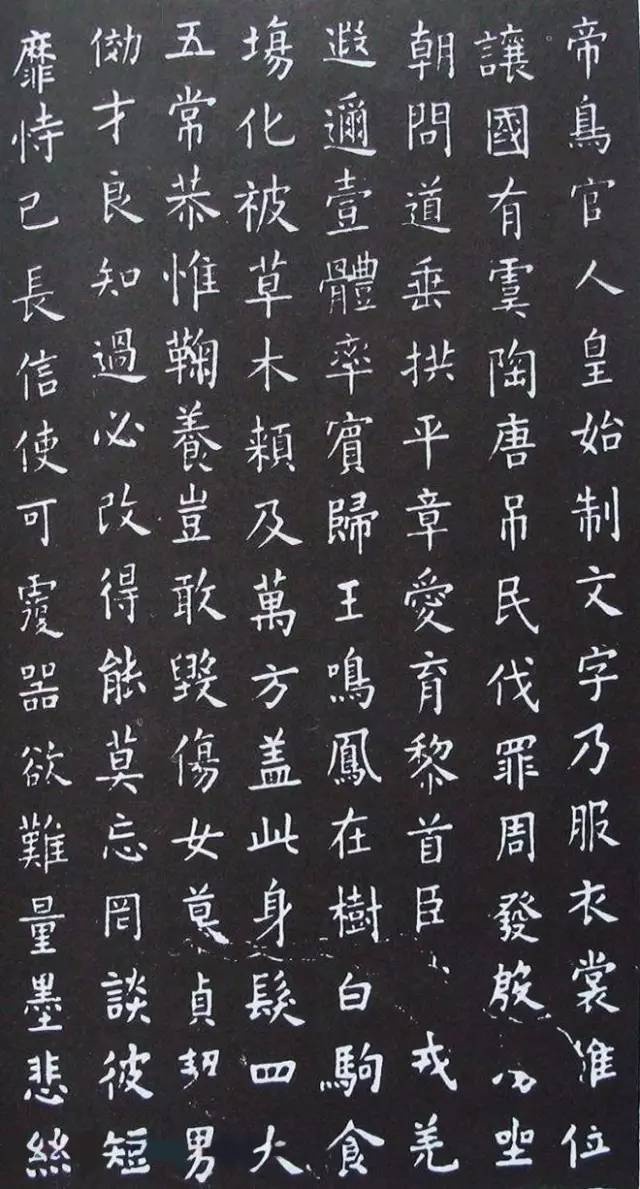 帝鳥官人皇始制文字乃服衣裳推位
讓國有虞陶唐吊民伐罪周發殷坐
朝問道垂拱平章愛育黎首臣戎羌
遐邇壹體率賓歸王鳴鳳在樹白駒食
塲化被草木賴及萬方盖此身髮四大
五常恭惟鞠養豈敢毀傷女慕貞男
効才良知過必改得能莫忘罔談彼短
靡恃己長信使可覆器欲難量墨悲絲